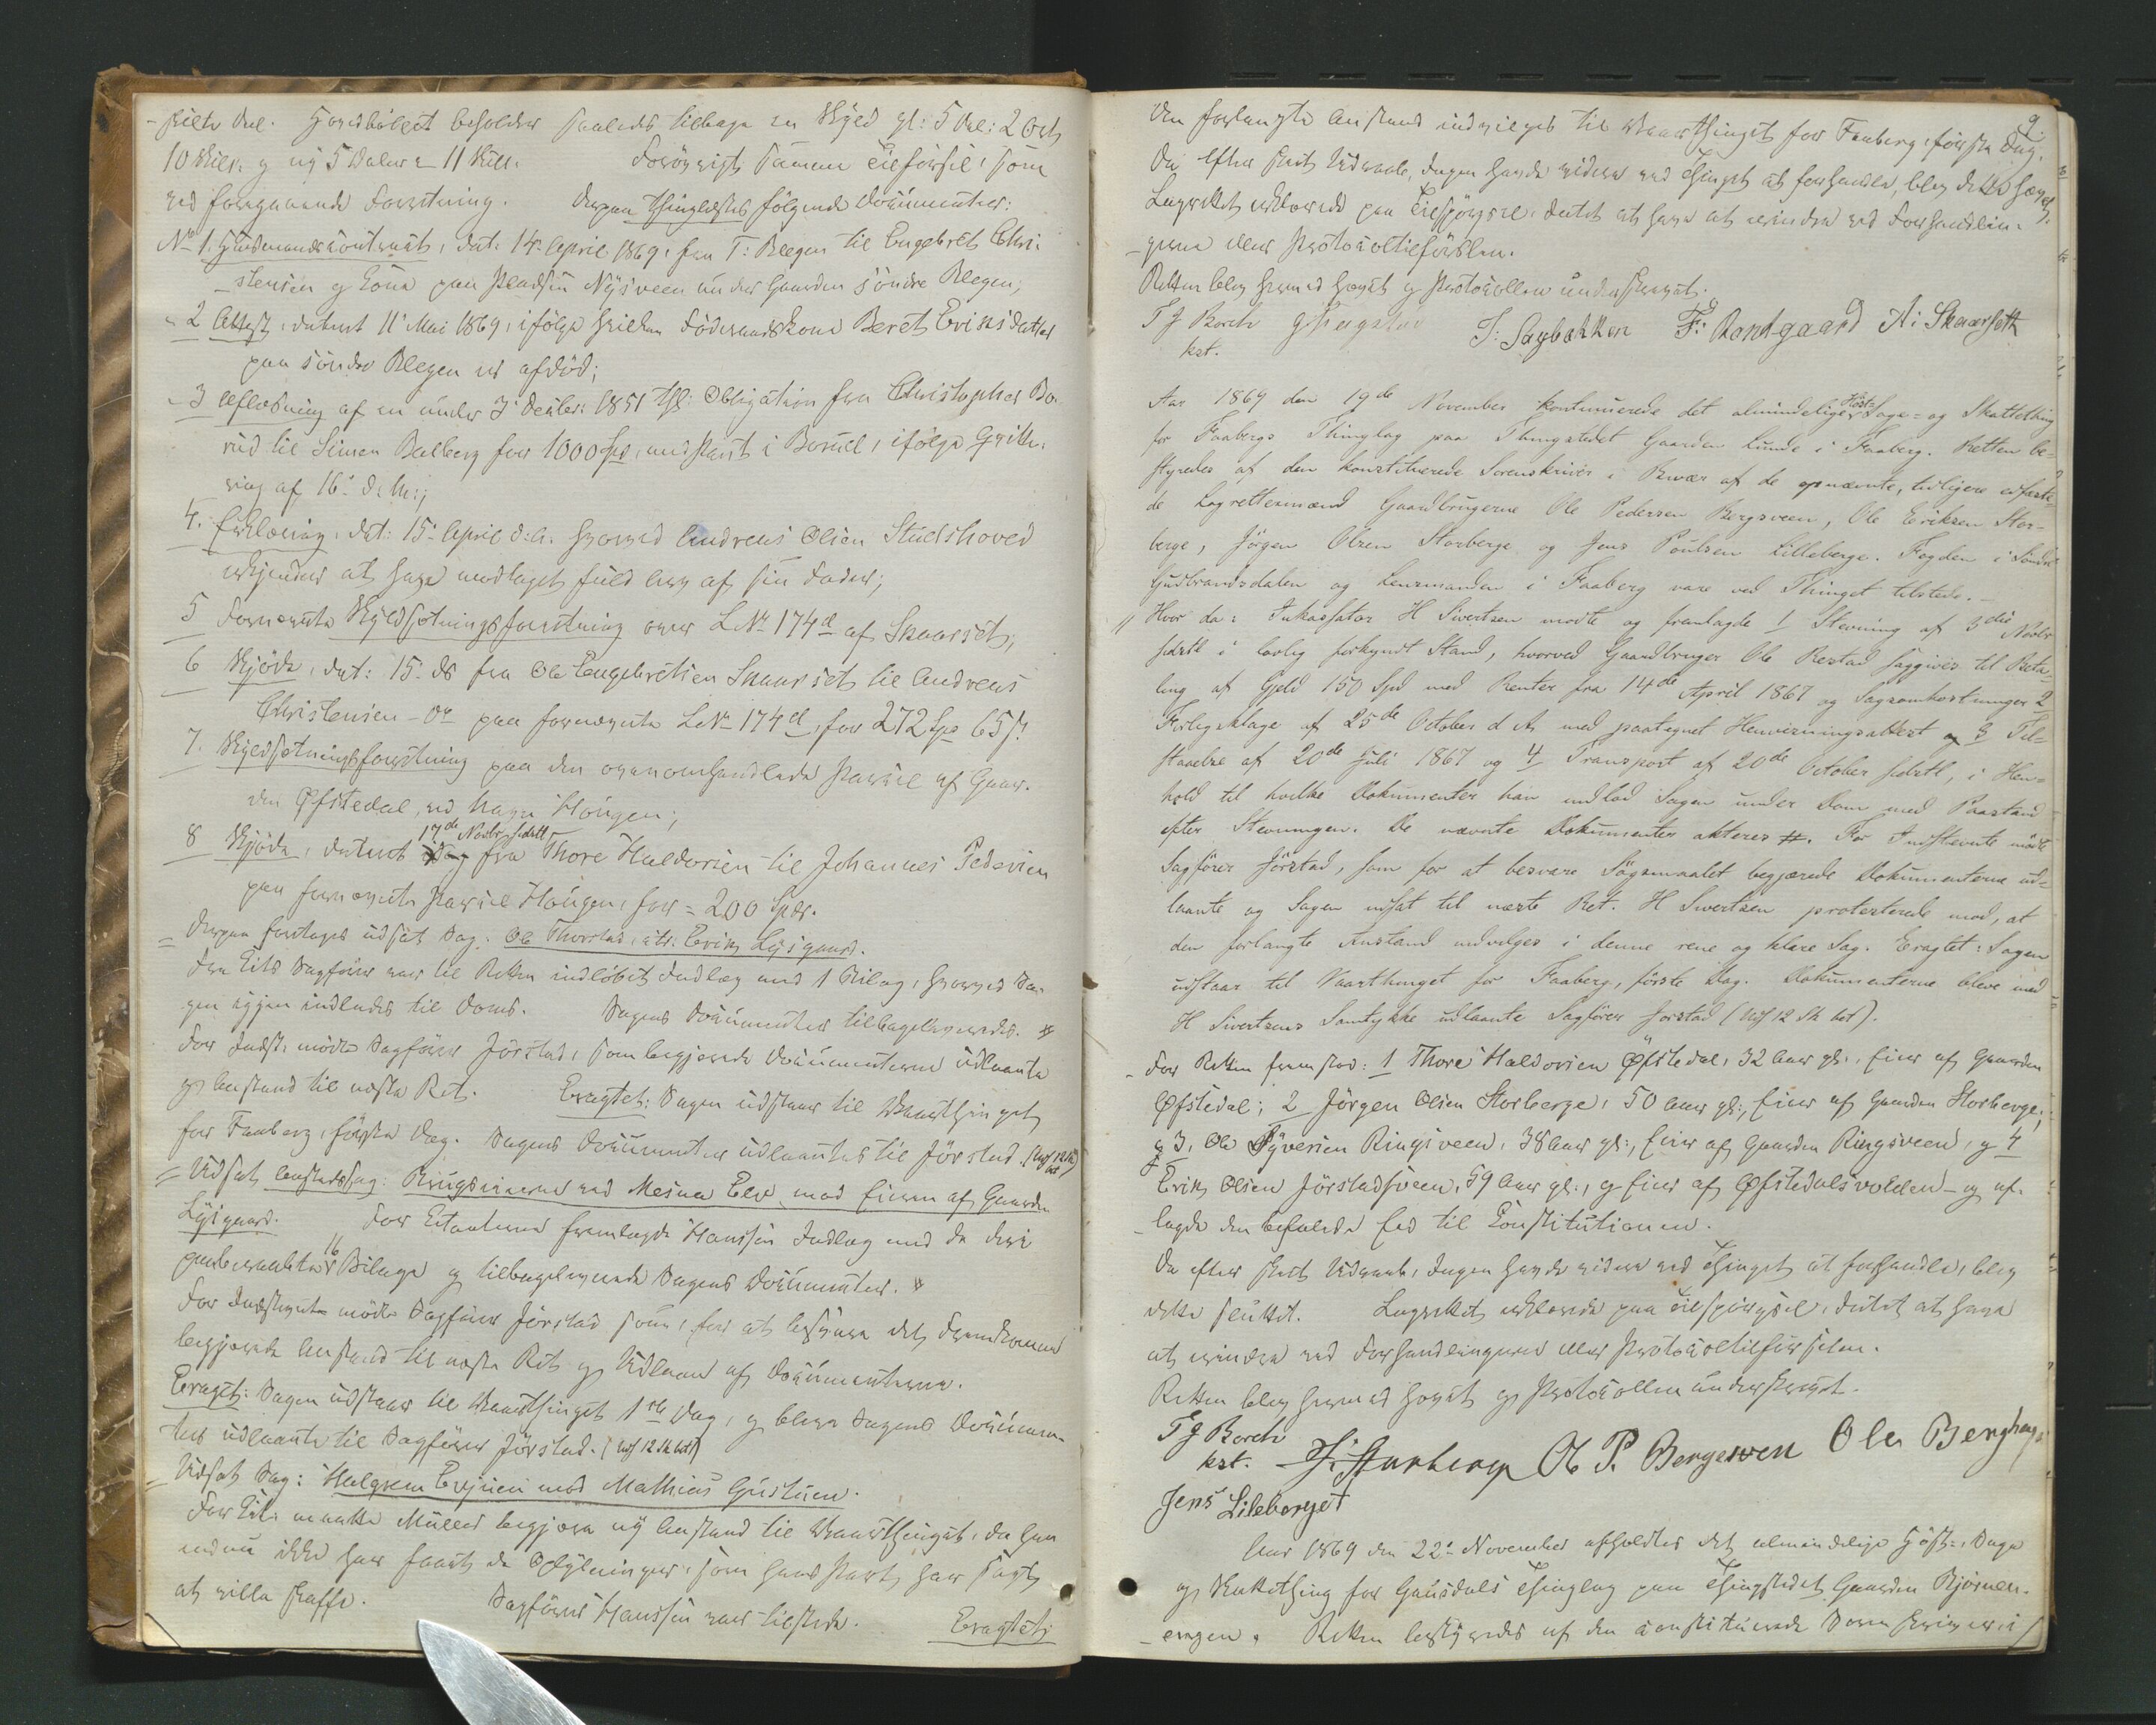 -ficte Dal. Hovedbölet beholder saaledes tilbage en Skyld gl: 5 Dal: 2 Ort
10 Skill. og ny 5 Daler - 11 Skill. Forövrigt samme Tilförsel, som
ved foregaaende Forretning. Derpaa thinglæstes fölgende Documenter:
No 1. Huusmandscontract, dat: 14. April 1869, fra T: Blegen til Engebret Chri-
-stensen og Kone paa Pladsen Nysveen under Gaarden söndre Blegen;
" 2 Attest, dateret 11' Mai 1869, ifölge hvilken Föderaadskone Beret Eriksdatter
paa söndre Blegen er afdöd;
" 3 Aflæsning af en under 3' Decbr: 1851 thgl: Obligation fra Christopher Bo-
rud til Simen Balberg for 1000 Spd, med Pant i Borud, ifölge Qvitte-
ring af 16' d: M:;
4. Erklæring, dat: 15. April d: A. hvorved Andreas Olsen Studshoved
erkjender at have modtaget fuld Arv af sin Fader;
5 Fornævnte Skyldsætningsforretning over LNr 174d af Skaarset,
6 Skjöde, dat: 15. ds fra Ole Engebretsen Skaarset til Andreas
Christensen - Do paa fornævnte LNr 174d, for 272 Spd 65 s.
7. Skyldsætningsforretning paa den ovenomhandlede Parcel af Gaar-
den Øfstedal, ved Navn Hougen;
8 Skjöde, dateret 17de Novbr sidstl fra Thore Haldorsen til Johannes Pedersen
paa fornævnte Parcel Hougen, for = 200 Spdr.
= Derpaa foretoges udsat Sag: Ole Thorstad, ctr: Erik Lysgaard.
Fra Cits Sagförer var til Retten indlöbet Indlæg med 1 Bilag, hvorved Sa-
gen igjen indlodes til Doms. Sagens Documenter tilbageleveredes. #
For Indst: mödte Sagförer Jörstad, som begjerede Documenterne udlaante
og Anstand til næste Ret. Eragtet: Sagen udstaar til Vaarthinget
for Faaberg, förste Dag. Sagens Documenter udlaantes til Jörstad. (Uds 12 Sk bet)
= Udsat Anstandssag: Brugseierne ved Mesna Elv mod Eieren af Gaarden
Lysgaard. For Citanterne fremlagde Hanssen Indlæg med de deri
paaberaabte 16 Bilage og tilbageleverede Sagens Documenter. #
For Indstevnte mödte Sagförer Jörstad som, for at besvare det Fremkomne
begjerede Anstand til næste Ret og Udlaan af Documenterne.
Eragtet: Sagen udstaar til Vaarthinget 1ste Dag, og bleve Sagens Documen-
ter udlaante til Sagförer Jörstad. (uds 12 Sk bet)
= Udsat Sag: Halgrem Evjuen mod Mathias Gustuen.
For Cit. maatte Müller begjere ny Anstand til Vaarthinget, da han
endnu ikke har faaet de Oplysninger, som hans Part har sagt
at ville skaffe. Sagförer Hanssen var tilstede. Eragtet:
9.
Den forlangte Anstand indvilges til Vaarthinget for Faaberg, förste Dag.
Da efter skeet Udraab, Ingen havde videre ved Thinget at forhandle, blev dette hævet.
Lagrettet erklærede paa Tilspörgsel, Intet at have at erindre ved Forhandlin-
-gerne eller Protocoltilförslen.
Retten blev hermed hævet og Protocollen underskrevet.
T J Borch
kst.
J: Sagbakken F: Rantgaard A: Skaarseth
Aar 1869 den 19de November kontinuerede det almindelige Höst- Sage- og Skattething
for Faabergs Thinglag paa Thingstedet Gaarden Lunde i Faaberg. Retten be-
styredes af den konstituerede Sorenskriver i Overvær af de opnævnte, tidligere edfæste-
de Lagrettesmænd Gaardbrugerne Ole Pedersen Bergsveen, Ole Eriksen Stor-
berge, Jörgen Olsen Storberge og Jens Poulsen Lilleberge. Fogden i Söndre
Gudbrandsdalen og Lensmanden i Faaberg vare ved Thinget tilstede.
// Hvor da: Inkassator H Sivertsen mödte og fremlagde 1 Stevning af 3die Novbr
sidstl i lovlig forkyndt Stand, hvorved Gaardbruger Ole Restad saggives til Beta-
ling af Gjeld 150 Spd med Renter fra 14de April 1867 og Sagsomkostninger 2
Forligsklage af 25de October d A. med paategnet Henvisningsattest og 3 Til-
staaelse af 20de Juli 1867 og 4 Transport af 20de October sidstl, i Hen-
hold til hvilke Dokumenter han indlod Sagen under Dom med Paastand
efter Stevningen. De nævnte Dokumenter akteres #. For Indstevnte mödte
Sagförer Jörstad, som for at besvare Sögsmaalet begjærede Dokumenterne ud-
laante og Sagen udsat til næste Ret. H Sivertsen protesterede mod, at
den forlangte Anstand indvilges i denne rene og klare Sag. Eragtet: Sagen
udstaar til Vaarthinget for Faaberg, förste Dag. Dokumenterne bleve med
H Sivertsens Samtykke udlaante Sagförer Jörstad (Uds 12 Sk bet).
- For Retten fremstod: 1 Thore Haldorsen Øfstedal, 32 Aar gl:, Eier af Gaarden
Øfstedal; 2 Jörgen Olsen Storberge, 50 Aar gl:, Eier af Gaarden Storberge;
og 3, Ole Syversen Ringsveen, 38 Aar gl:, Eier af Gaarden Ringsveen, og 4
Erik Olsen Jörstadsveen, 59 Aar gl:, og Eier af Øfstedalsvolden - og af-
lagde den befalede Eed til Constitutionen.
Da efter skeet Udraab, Ingen havde videre ved Thinget at forhandle, blev
dette sluttet. Lagrettet erklærede paa Tilspörgsel, Intet at have
at erindre ved Forhandlingerne eller Protocoltilförselen.
Retten blev hermed hævet og Protocollen underskrevet.
T J Borch
kst. J: Storberge Ole P. Bergesveen Ole Berghage
Jens Lileberget
Aar 1869 den 22' November afholdtes det almindelige Höst-, Sage
og Skattething for Gausdals Thinglag paa Thingstedet Gaarden Bjørnen-
-engen. Retten bestyredes af den constituerede Sorenskriver i